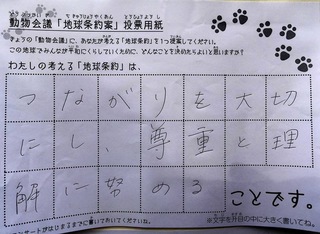 動物会議「地球条約案」投票用紙
きょうの「動物会議」に、あなたが考える「地球条約」を1つ提案してください。
この地球でみんなが平和にくらしていくために、どんなことを決めたらよいと思いますか?
わたしの考える「地球条約」は、
つながりを大切
にし、尊重と理
解に努める
ことです。
※文字を升目の中に大きく書いてね。